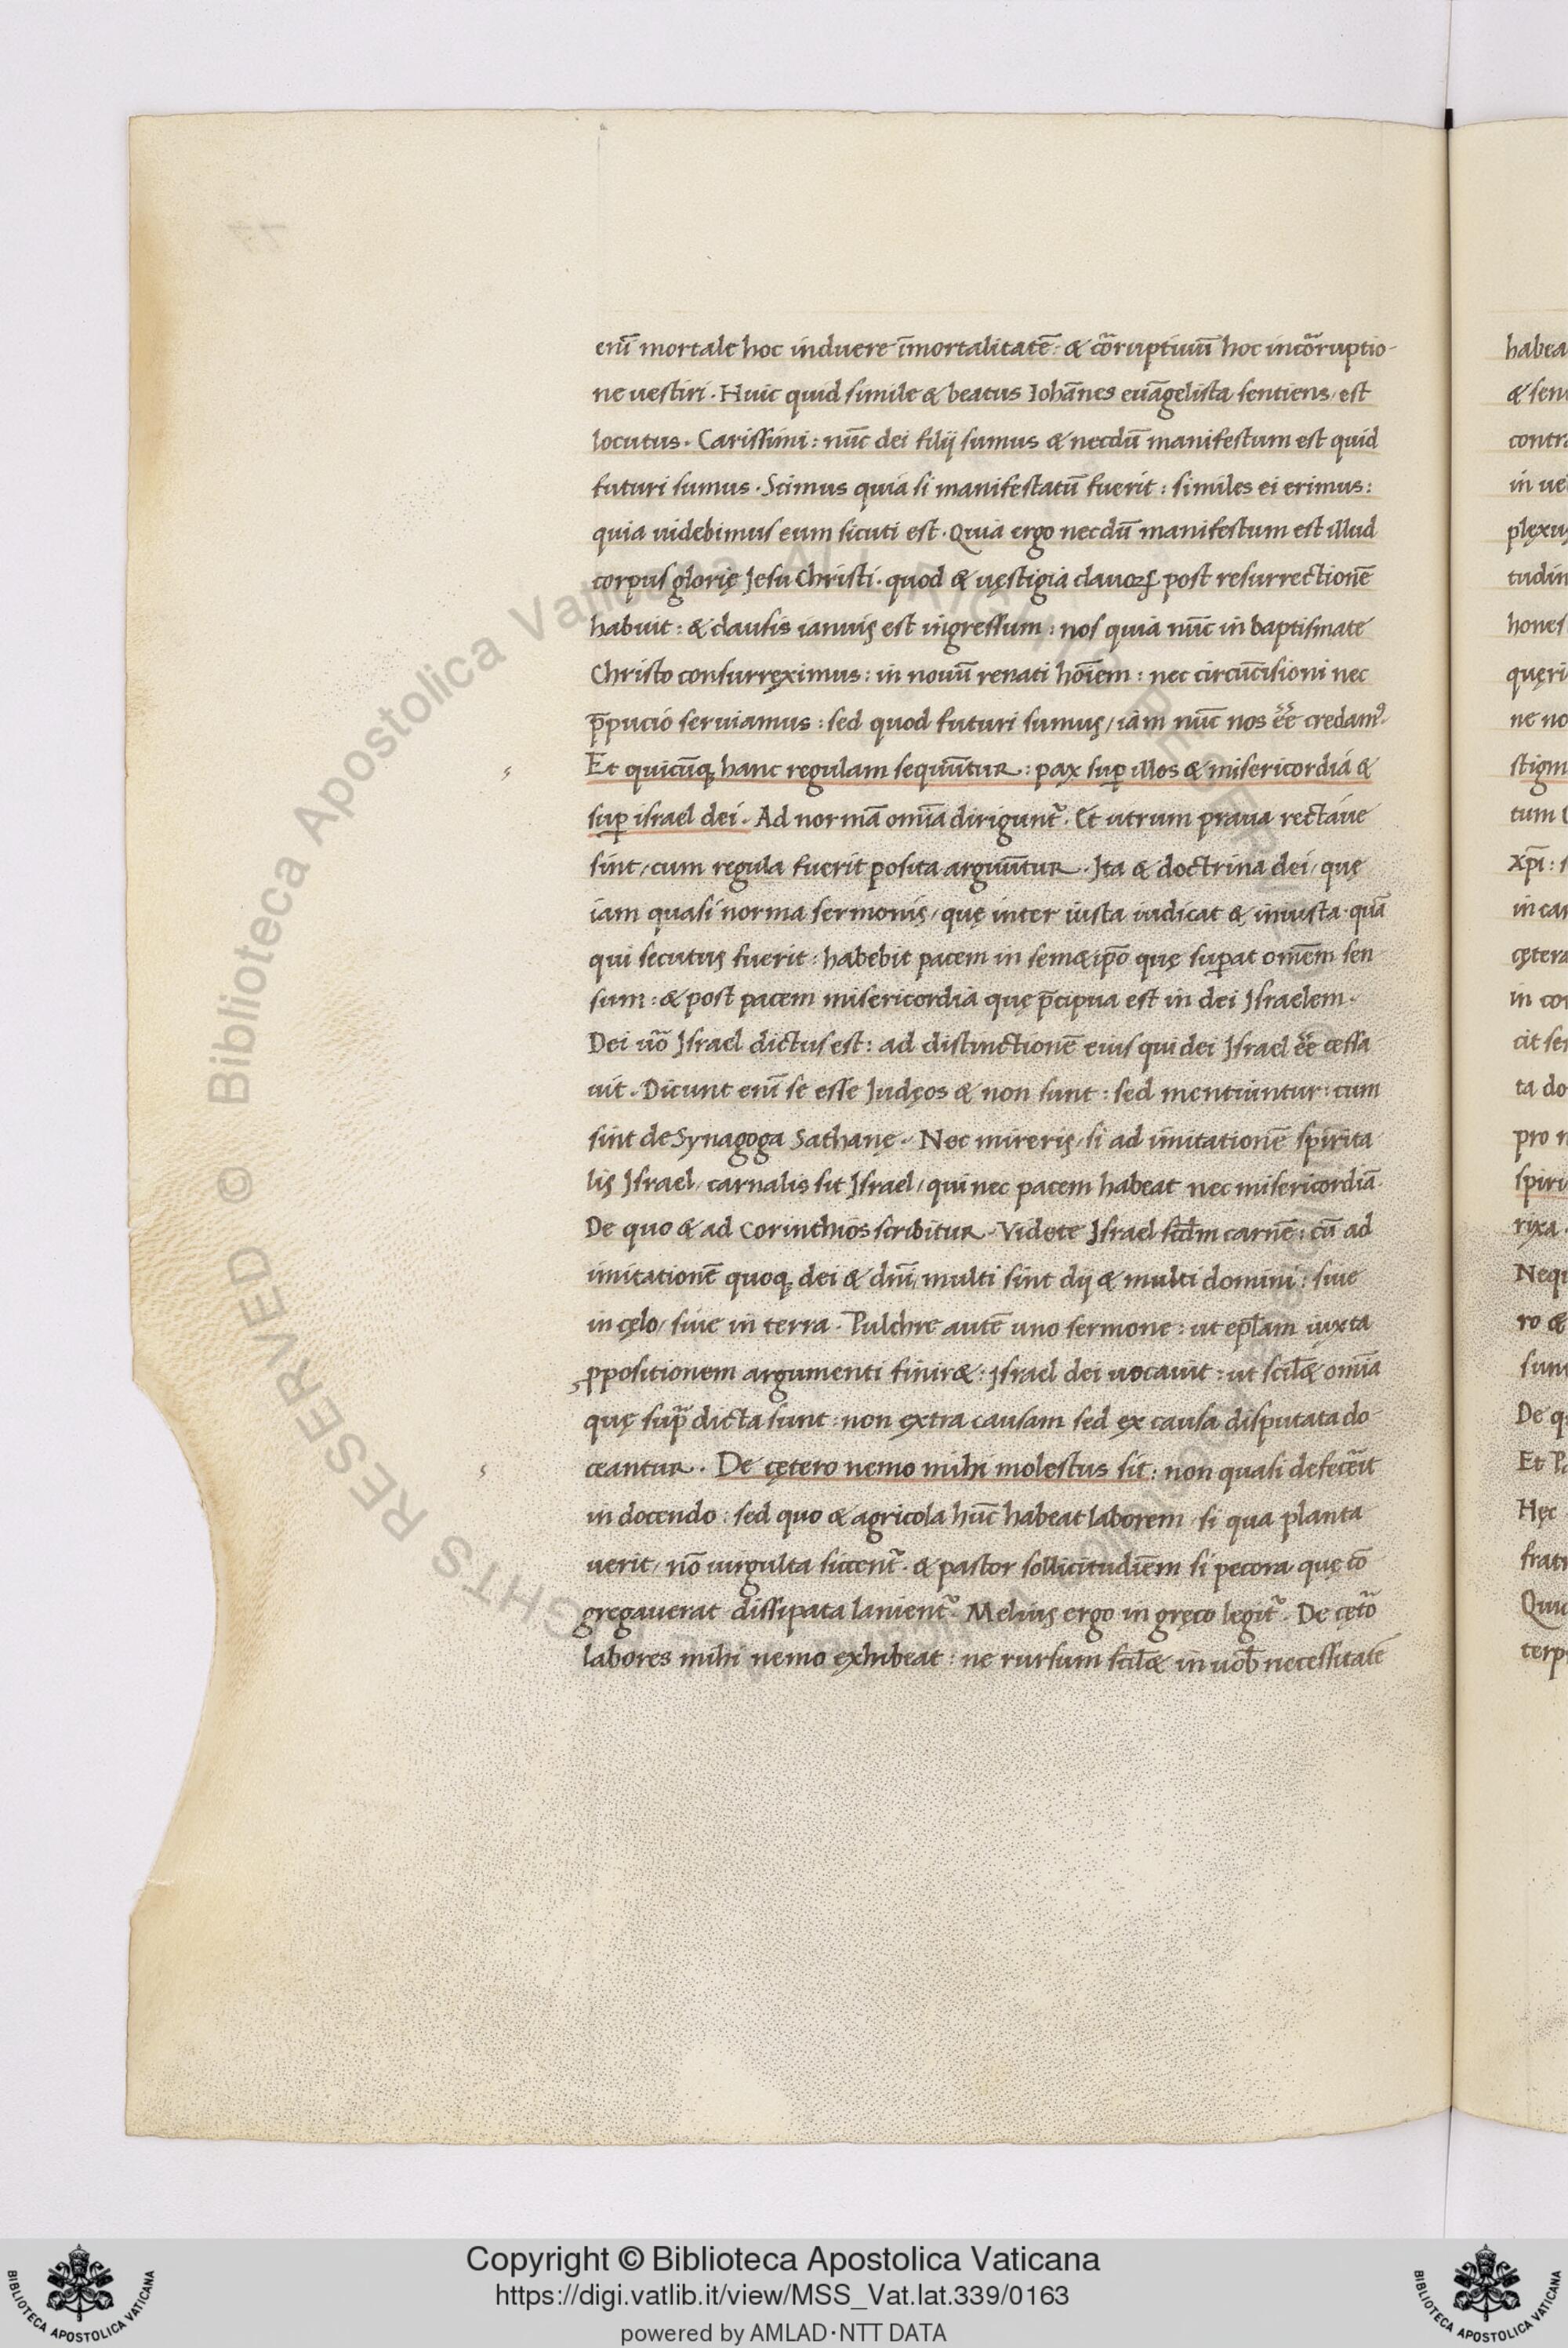 enī mortale hoc induere īmortalitatē: & cōruptiuū hoc incōruptio-
ne uestiri. Huic quid simile & beatus Iohānes euāgelista sentiens, est
locutus. Carissimi: nūc dei filij sumus & necdū manifestum est quid
futuri sumus. Scimus quia si manifestatū fuerit: similes ei erimus:
quia uidebimus eum sicuti est. Quia ergo necdū manifestum est illud
corpus glorię Jesu Christi. quod & uęstigia clauoꝝ post resurrectionē
habuit: & clausis ianuis est ingressum: nos quia nūc in baptismate
Christo consurręximus: in nouū renati hoīem: nec circūcisioni nec
p̄pucio seruiamus: sed quod futuri sumus, iam nūc nos ēē credamꝰ.
Et quicūq hanc regulam sequūtur: pax suꝑ illos & misericordia &
suꝑ israel dei. Ad normā omīa diriguntr̄. Et utrum praua rectáue
sint, cum regula fuerit posita arguūtur. Ita & doctrina dei, quę
iam quasi norma sermonis, quę inter iusta iudicat & iniusta. quā
qui secutus fuerit: habebit pacem in sem&ip̄o quę suꝑat omēm sen
sum: & post pacem misericordia quę p̄cipua est in dei Jsraelem.
Dei uō Jsrael dictus est: ad distinctionē eius qui dei Jsrael ēē cessa
uit. Dicunt enī se esse Judęos & non sunt: sed mentiuntur: cum
sint de Synagoga Sathanę. Nec mireris, si ad imitationē spirita
lis Jsrael, carnalis sit Jsrael, qui nec pacem habeat nec misericordiā
De quo & ad Corinthios scribitur. Videte Jsrael scdm carnē: cū ad
imitationē quoq dei & dnī, multi sint dij & multi domini: siue
in cęlo, siue in terra. Pulchre autē uno sermone: ut ep̄lam iuxta
ꝓpositionem argumenti finir&: Jsrael dei uocauit: ut scil& omīa
quę supra dicta sunt: non extra causam sed ex causa disputata do-
ceantur. De cętero nemo mihi molestus sit: non quasi defecerit
in docendo: sed quo & agricola hūc habeat laborem, si qua planta
uerit, nō uirgulta siccentr̄. & pastor sollicitudiēm si pecora, quę cō
gregauerat dissipata lanientr̄. Melius ergo in gręco legitr̄. De cętō
labores mihi nemo exhibeat: ne rursum scil& in uob̄ necessitatē
habea
& sen
contra
plęxu
tudin
hones
quęri
ne no
stigm
tum
xp̄i:
in car
cętera
in cor
cit se
ta do
pro
spiri
rixa.
Neq
ro &
sunt
De q
Hęc
fratr
terp
Copyright © Biblioteca Apostolica Vaticana
https://digi.vatlib.it/view/MSS_Vat.lat.339/0163
powered by AMLAD·NTT DATA
BIBLIOTECA APOSTOLICA VATICANA
BIBLIOTECA APOSTOLICA VATICANA